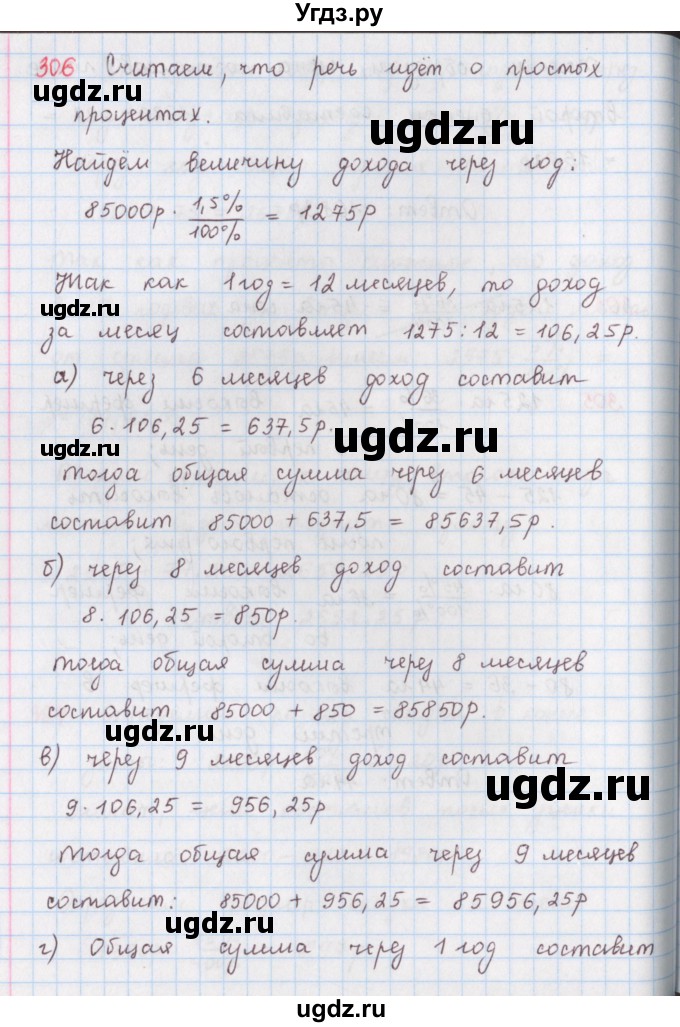 Угдз.ру
306 Считаем, что речь идёт о простых
ugdz.ru
процентах.
ugdz.ru
Найдём величину дохода через год:
85000р · 1,5%/100% = 1275р
Так как 1 год = 12 месяцев, то доход
ugdz.ru
за месяц составляет 1275:12 = 106,25р.
а) через 6 месяцев доход составит
6·106,25 = 637,5р.
ugdz.ru
тогда общая сумма через 6 месяцев
составит 85000 + 637,5 = 85637,5р.
б) через 8 месяцев доход составит
8·106,25 = 850р.
ugdz.ru
Тогда общая сумма через 8 месяцев
составит 85000 + 850 = 85850р.
ugdz.ru
в) через 9 месяцев доход составит
ugdz.ru
9·106,25 = 956,25р
Тогда общая сумма через 9 месяцев
составит: 85000 + 956,25 = 85956,25р
ugdz.ru
г) Общая сумма через 1 год составит
ugdz.ru